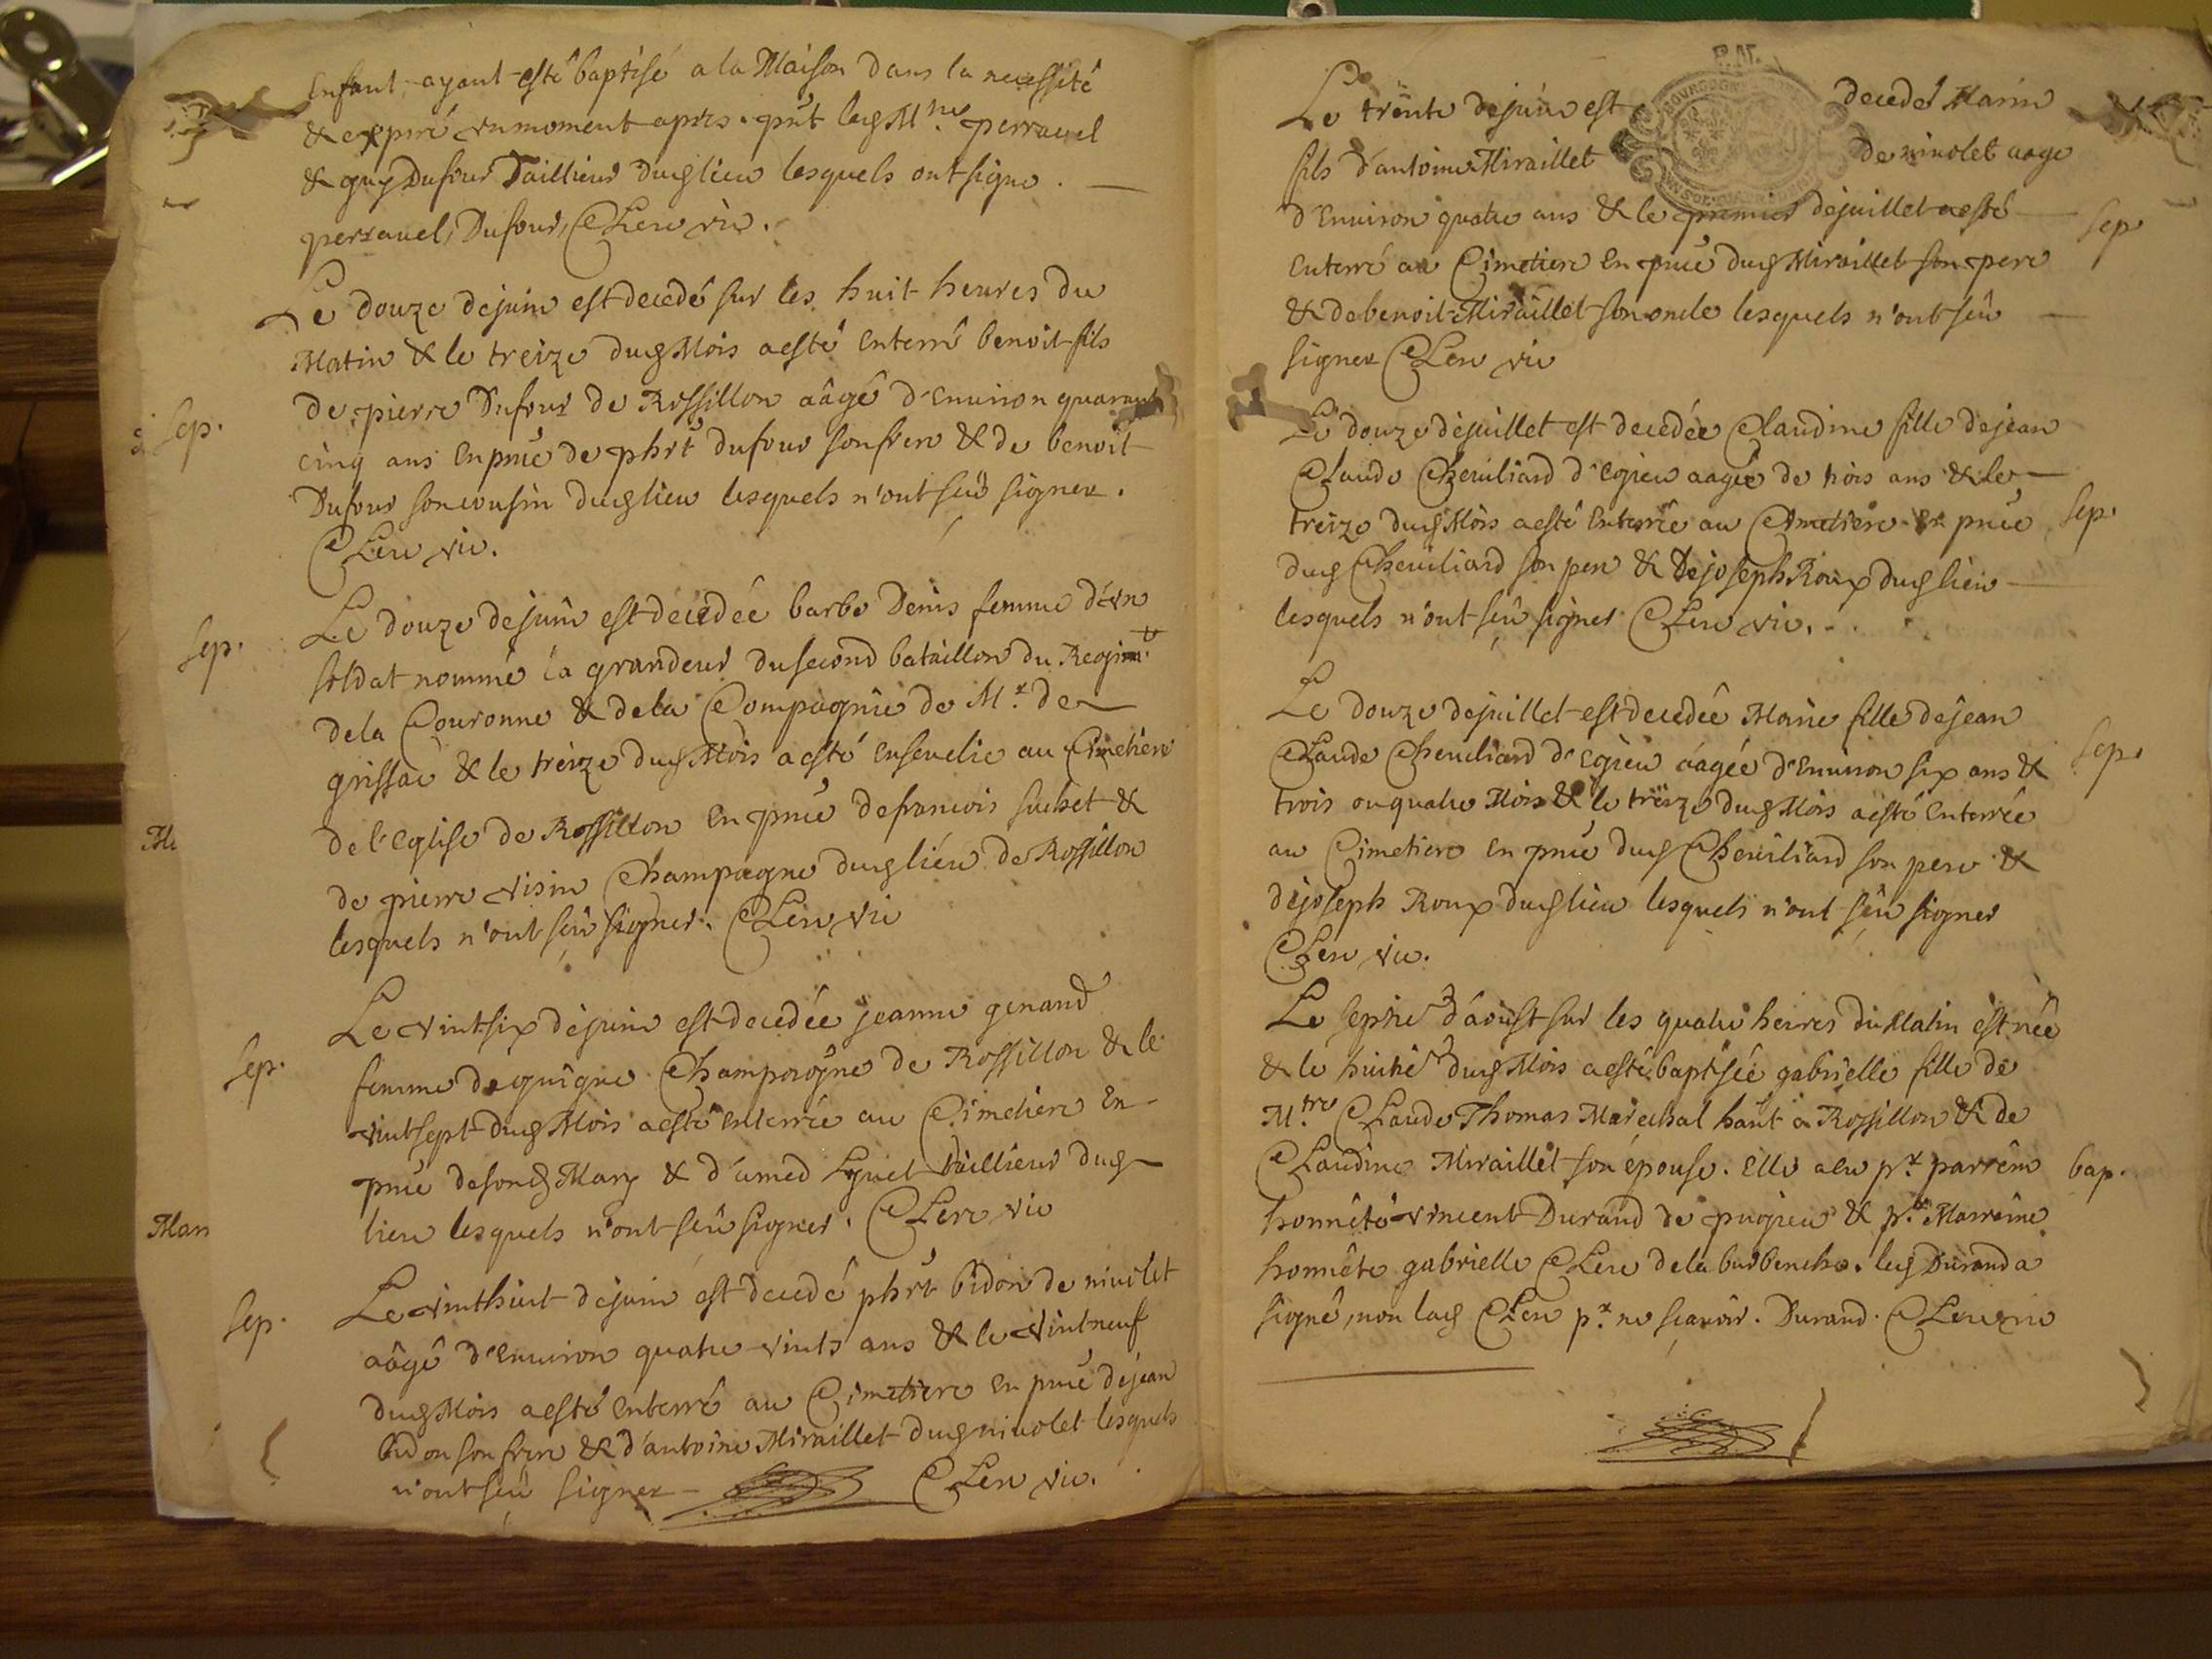 Enfant ayant esté baptisé a la Maison dans la necessité
& expiré un moment apres. pnt led M.tre perrauel
& guy Dufour Taillieur dud lieu lesquels ont signe.
perrauel, Dufour, Clerc vic.
Le douze de juin est decedé sur les huit heures du
Matin & le treize dud Mois a esté enterré benoit fils
de pierre Dufour de Rossillon aâgé d'enuiron quarante
Sep.
cinq ans en pnce de phrt dufour son frere & de benoit
Dufour son cousin dud lieu lesquels n'ont seû signer.
Clerc vic.
Le douze de juin est decedée barbe Denis femme d'vn
Sep.
soldat nommé la grandeur du second bataillon du Regimt
de la Couronne & de la Compagnie de Mr. de
grissac & le treize dud Mois a esté enseuelie au Cimetiere
de l'Eglise de Rossillon en pnce de francois suchet &
de pierre visin Champagne dud lieu de Rossillon
lesquels n'ont seû signer. Clerc vic
Le vintsix de juin est decedée jeanne genand
Sep.
femme de guigue Champagne de Rossillon & le
vintsept dud Mois a esté enterrée au Cimetiere en
pnce de sond Mary & d'amed Lyuet Taillieur dud
lieu lesquels n'ont seû signer. Clerc vic
Le vinthuit de juin est decedé phrt bidon de niuolet
Sep.
aâgé d'enuiron quatre vints ans & le vintneuf
dud Mois a esté enterré au Cimetiere en pnce de jean
bidon son frere & d'antoine Miraillet dud niuolet lesquels
n'ont seû signer Clerc vic.
Le trente de juin est decedé Marin
fils d'antoine Miraillet de niuolet aage
d'enuiron quatre ans & le premier de juillet a esté
Sep.
enterré au Cimetiere en pnce dud Miraillet son pere
& de benoit Miraillet son oncle lesquels n'ont seû
signer Clerc vic
Le douze de juillet est decedée Claudine fille de jean
Claude Cheuiliard d'egieu aagée de trois ans & le
treize dud Mois a esté enterrée au Cimetiere en pnce
Sep.
dud Cheuiliard son pere & de joseph Roux dud lieu
lesquels n'ont seû signer Clerc vic.
Le douze de juillet est decedée Marie fille de jean
Claude Cheuiliard d'egieu aagée d'enuiron six ans &
Sep.
trois ou quatre Mois & le treize dud Mois a esté enterrée
au Cimetiere en pnce dud Cheuiliard son pere &
de joseph Roux dud lieu lesquels n'ont seû signer
Clerc vic.
Le septie d'aoust sur les quatre heures du Matin est née
& le huitie dud Mois a esté baptisée gabrielle fille de
M.tre Claude Thomas Marechal hant a Rossillon & de
Claudine Miraillet son épouse. Elle a eu pr. parrein
bap.
honnête vincent Durand de pugieu & pr. Marreine
honnête gabrielle Clerc de la burbenche. led Durand a
signé, non lad Clerc pr. ne scauoir. Durand. Clerc vic